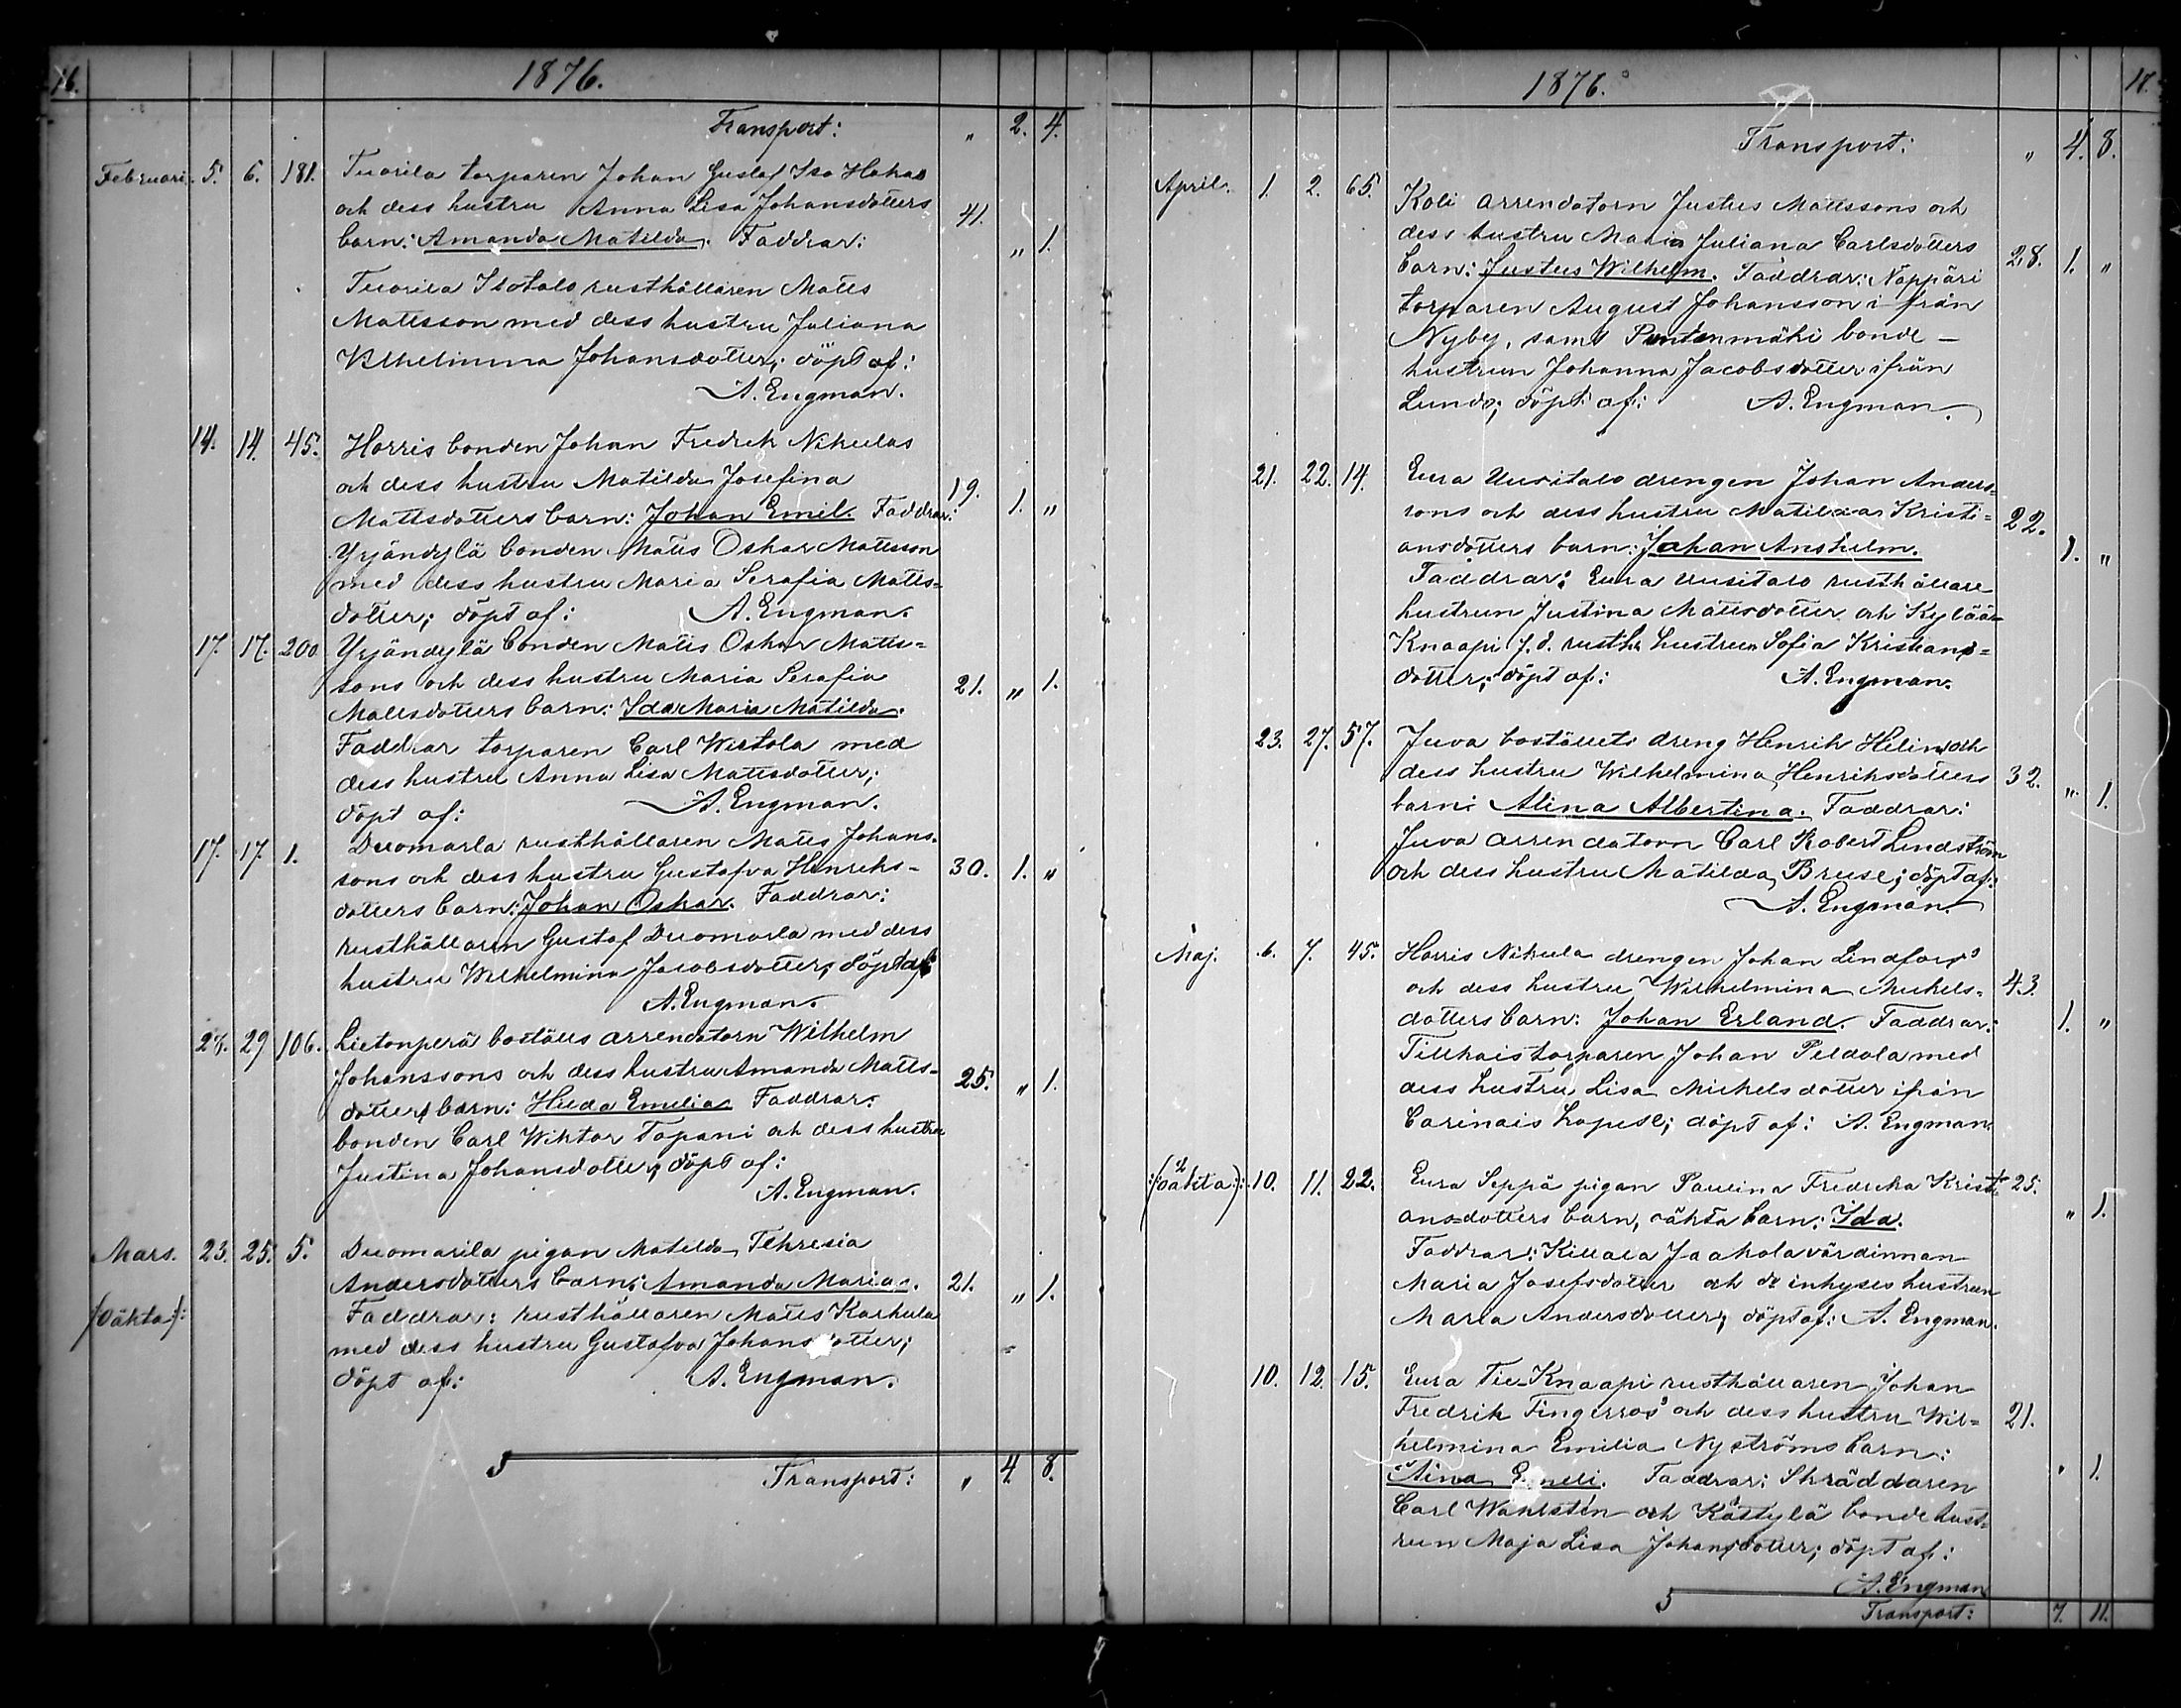 16.
1876.
Transport: " 2. 4.
Februari. 5. 6. 181. Tuorila torparen Johan Gustaf Iso Hakas
och dess hustru Anna Lisa Johansdotters 41.
barn: Amanda Matilda. Faddrar: " 1.
Tuorila Isotalo rusthållaren Matts
Mattsson med dess hustru Juliana
Vilhelmina Johansdotter; döpt af:
A. Engman.
14. 14. 45. Horris bonden Johan Fredrik Nikulas
och dess hustru Matilda Josefina 19.
Mattsdotters barn: Johan Emil. Faddrar: 1. "
Yrjändylä bonden Matts Oskar Mattsson
med dess hustru Maria Serafia Matts=
dotter; döpt af: A. Engman.
17. 17. 200 Yrjändylä bonden Matts Oskar Matts=
sons och dess hustru Maria Serafia 21. " 1.
Mattsdotters barn: Ida Maria Matilda.
Faddrar torparen Carl Wistola med
dess hustru Anna Lisa Mattsdotter;
döpt af: A. Engman.
17. 17. 1. Duomarla rusthållaren Matts Johans-
sons och dess hustru Gustafva Henriks- 30. 1. "
dotters barn: Johan Oskar. Faddrar:
rusthållaren Gustaf Duomarla med dess
hustru Wilhelmina Jacobsdotter; döpt af:
A. Engman.
27. 29 106. Lietonperä boställs arrendatorn Wilhelm
Johanssons och dess hustru Amanda Matts- 25. " 1.
dotters barn: Hilda Emilia. Faddrar:
bonden Carl Wiktor Tapani och dess hustru
Justina Johansdotter; döpt af:
A. Engman.
Mars. 23. 25. 5. Duomarila pigan Matilda Thresia
Andersdotters barn: Amanda Maria. 21. " 1.
(oäkta): Faddrar: rusthållaren Matts Karhula
med dess hustru Gustafva Johansdotter;
döpt af: A. Engman.
Transport: " 4. 8.
17.
1876.
Transport: " 4. 8.
April. 1. 2. 65. Koli arrendatorn Justus Mattssons och
dess hustru Maria Juliana Carlsdotters 28. 1. "
barn: Justus Wilhelm. Faddrar: Näppäri
torparen August Johansson i från
Nyby, samt Pentenmäki bonde-
hustrun Johanna Jacobsdotter ifrån
Lundo; döpt af: A. Engman.
21. 22. 14. Eura Uusitalo drengen Johan Anders=
sons och dess hustru Matilda Kristi= 22.
ansdotters barn: Johan Anshelm. 1. "
Faddrar: Eura Uusitalo rusthållare
hustrun Justina Mattsdotter och Kylään
Knaapi f. d. rusth. hustrun Sofia Kristians=
dotter; döpt af: A. Engman.
23. 27. 57. Juva boställets dreng Henrik Helins och
dess hustru Wilhelmina Henriksdotters 32. " 1.
barn: Alina Albertina. Faddrar:
Juva arrendatorn Carl Robert Lindström
och dess hustru Matilda Bruse; döpt af:
A. Engman.
Maj. 6. 7. 45. Horris Nikula drengen Johan Lindfors's
och dess hustru Wilhelmina Mickels- 43.
dotters barn: Johan Erland. Faddrar: 1. "
Tillkais torparen Johan Peldola med
dess hustru Lisa Mickelsdotter ifrån
Carinais kapell; döpt af: A. Engman.
(oäkta): 10. 11. 22. Eura Seppä pigan Paulina Fredrika Kristi= 25.
ansdotters barn, oäkta barn: Ida. " 1.
Faddrar: Killala Jaakola värdinnan
Maria Josefsdotter och d:o inhyses hustrun
Maria Andersdotter; döpt af: A. Engman.
10. 12. 15. Eura Tie-Knaapi rusthållaren Johan
Fredrik Fingerroos' och dess hustru Wil= 21.
helmina Emilia Nyströms barn:
Aina Emeli. Faddrar: Skräddaren " 1.
Carl Wahlstén och Kättylä bonde hust=
run Maja Lisa Johansdotter; döpt af:
A. Engman
Transport: 7. 11.